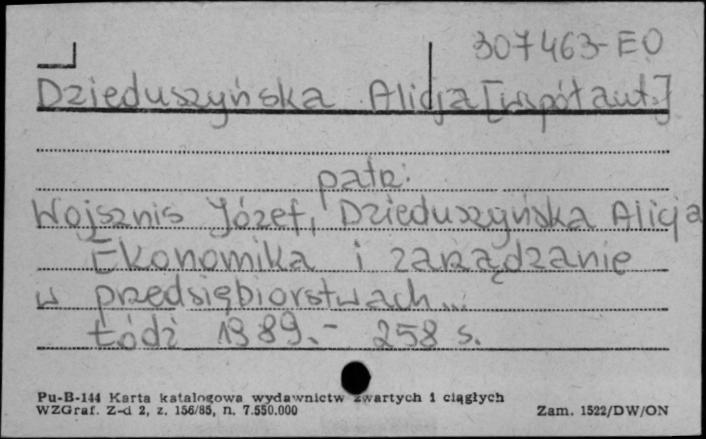 307463-EO
Dzieduszyńska Alicja [współaut.]
patrz:
Wojsznis Józef, Dzieduszyńska Alicja
Ekonomika i zarządzanie
w przedsiębiorstwach...
Łódź 1989.- 258 s.
Pu-B-144 Karta katalogowa wydawnictw zwartych i ciągłych
WZGraf. Z-d 2, z. 156/85, n. 7.550.000
Zam. 1522/DW/ON